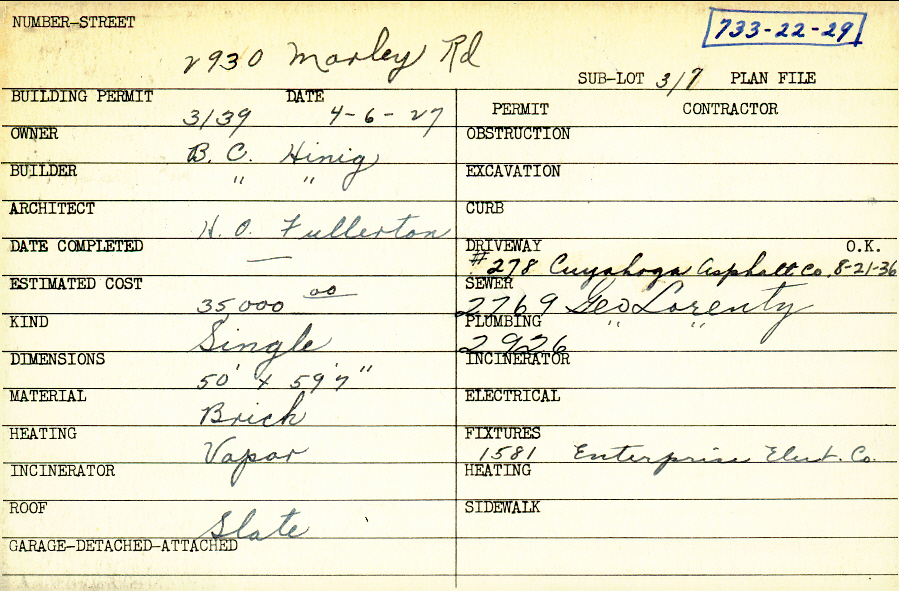 NUMBER-STREET
733-22-29
2930 Morley Rd
SUB-LOT 317 PLAN FILE
BUILDING PERMIT DATE
3139 4-6-27
OWNER
B. C. Hinig
BUILDER
" "
ARCHITECT
H. O. Fullerton
DATE COMPLETED
—
ESTIMATED COST
35,000 00
KIND
Single
DIMENSIONS
50' x 59'7"
MATERIAL
Brick
HEATING
Vapor
INCINERATOR
ROOF
Slate
GARAGE-DETACHED-ATTACHED
PERMIT CONTRACTOR
OBSTRUCTION
EXCAVATION
CURB
DRIVEWAY O.K.
#278 Cuyahoga Asphalt Co. 8-21-36
SEWER
2769 Geo Lorenty
PLUMBING
2926 " "
INCINERATOR
ELECTRICAL
FIXTURES
1581 Enterprise Elect. Co.
HEATING
SIDEWALK